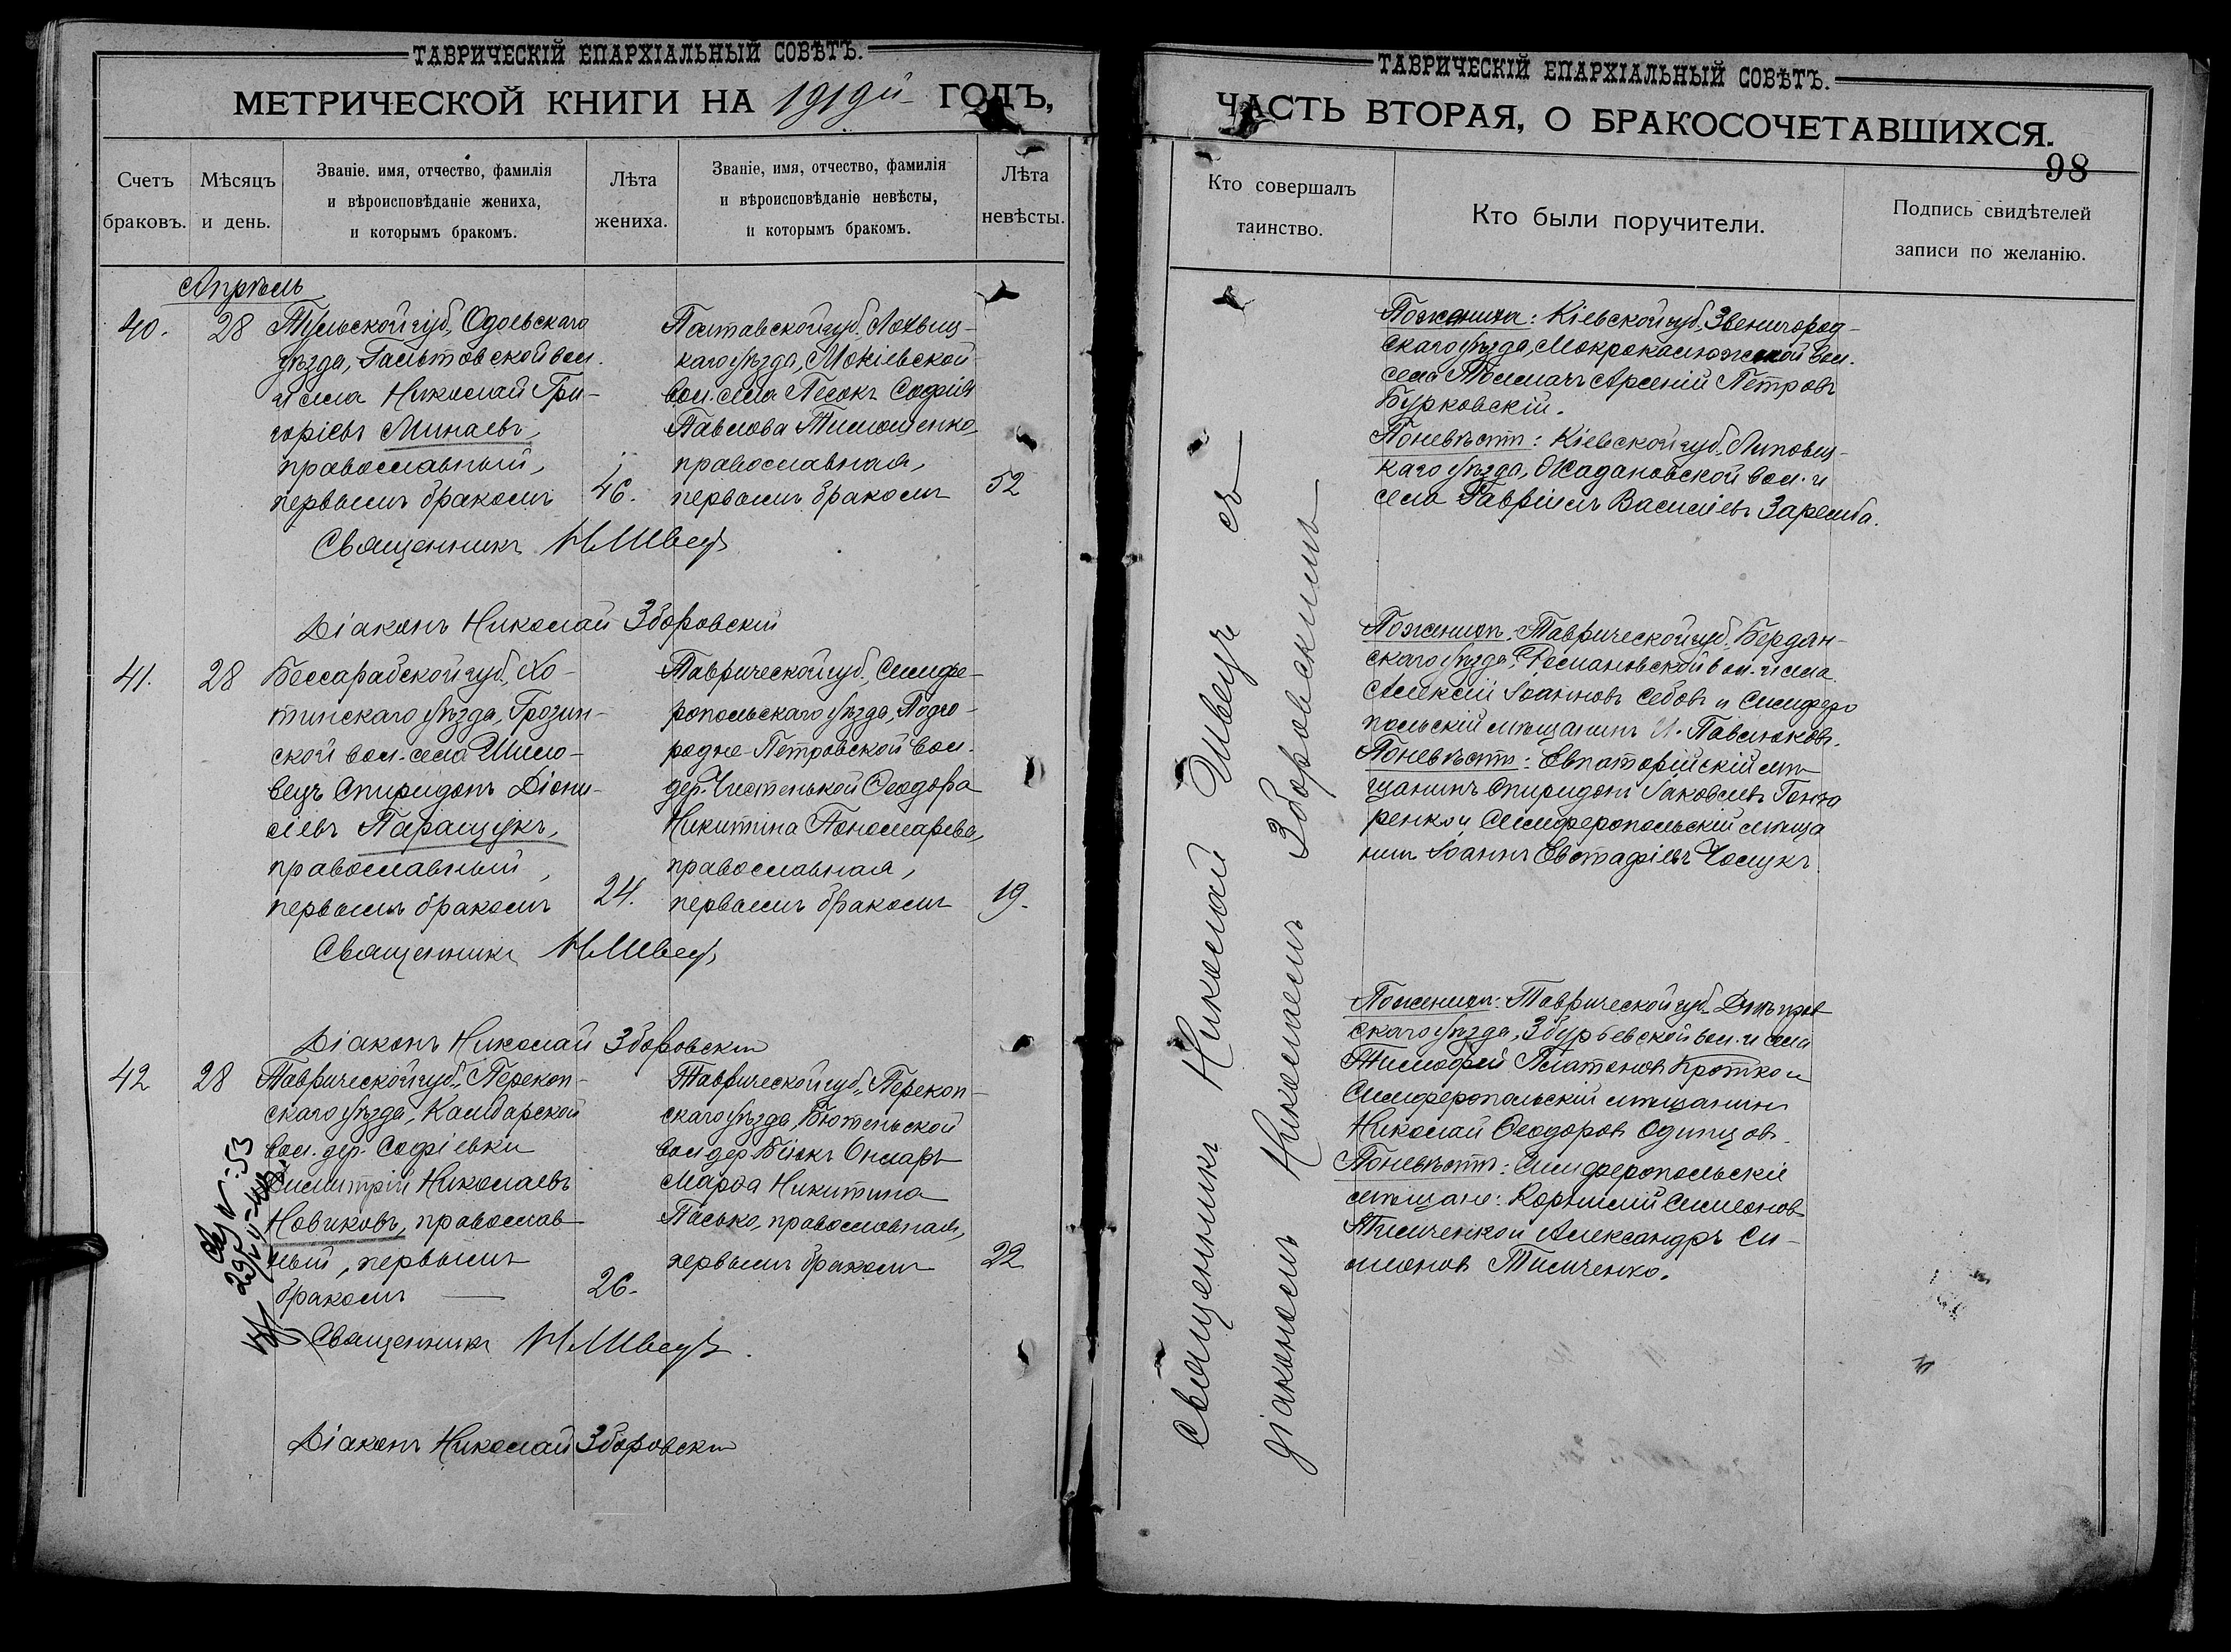 ТАВРИЧЕСКІЙ ЕПАРХІАЛЬНЫЙ СОВѢТЪ.
МЕТРИЧЕСКОЙ КНИГИ НА 1919й ГОДЪ,
Счетъ браковъ.
Мѣсяцъ и день.
Званіе. имя, отчество, фамилія
и вѣроисповѣданіе жениха,
и которымъ бракомъ.
Лѣта жениха.
Званіе, имя, отчество, фамилія
и вѣроисповѣданіе невѣсты,
и которымъ бракомъ.
Лѣта невѣсты.
Апрѣль
40.
28
Тульской губ., Одоевскаго
уѣзда, вол.
и села Николай Гри-
горіевъ Минаевъ,
православный,
первымъ бракомъ
46.
Полтавской губ., Лохвиц-
каго уѣзда,
вол. села Песокъ Софія
Павлова Тимошенко,
православная,
первымъ бракомъ
52
Священникъ Н. Швецъ
Діаконъ Николай Зборовскій
41.
28
Бессарабской губ., Хо-
тинскаго уѣзда, Грозин-
ской вол. села Шило-
вецъ Спиридонъ Діони-
сіевъ Паращукъ,
православный,
первымъ бракомъ
24.
Таврической губ., Симфе-
ропольскаго уѣзда, Подго-
родне-Петровской вол.
дер. Чистенькой Ѳеодора
Никитина Пономарева,
православная,
первымъ бракомъ
19.
Священникъ Н. Швецъ
Діаконъ Николай Зборовскій
42
28
Таврической губ., Перекоп-
скаго уѣзда,
вол. дер. Софіевки
Димитрій Николаевъ
Новиковъ, православ-
ный, первымъ
бракомъ
26.
Таврической губ., Перекоп-
скаго уѣзда, Бютеньской
вол. дер. Біюкъ Онларъ
Марѳа Никитина
Пасько, православная,
первымъ бракомъ
22
Священникъ Н. Швецъ.
Діаконъ Николай Зборовскій
ТАВРИЧЕСКІЙ ЕПАРХІАЛЬНЫЙ СОВѢТЪ.
ЧАСТЬ ВТОРАЯ, О БРАКОСОЧЕТАВШИХСЯ.
98
Кто совершалъ таинство.
Кто были поручители.
Подпись свидѣтелей
записи по желанію.
Священникъ Николай Швецъ съ
діакономъ Николаемъ Зборовскимъ
По женихѣ: Кіевской губ., Звенигород-
скаго уѣзда, Мокрокалигорской вол.
села Толмачъ Арсеній Петровъ
Бурковскій.
По невѣстѣ: Кіевской губ., Липовец-
каго уѣзда, Жадановской вол. и
села Гавріилъ Василіевъ Заремба.
По женихѣ: Таврической губ., Бердян-
скаго уѣзда, вол. и села
Алексій Іоанновъ Себовъ и Симферо
польскій мѣщанинъ И. Павлюковъ.
По невѣстѣ: Евпаторійскій мѣ-
щанинъ Спиридонъ Іаковлевъ Гонча
ренко и Симферопольскій мѣща
нинъ Іоаннъ Евстафіевъ
По женихѣ: Таврической губ., Днѣпров
скаго уѣзда, Збурьевской вол. и села
Тимофей Платоновъ Кротко и
Симферопольскій мѣщанинъ
Николай Ѳеодоровъ Одинцовъ.
По невѣстѣ: Симферопольскіе
мѣщане: Корнилій Симеоновъ
Тимченко и Александръ Си-
меоновъ Тимченко.